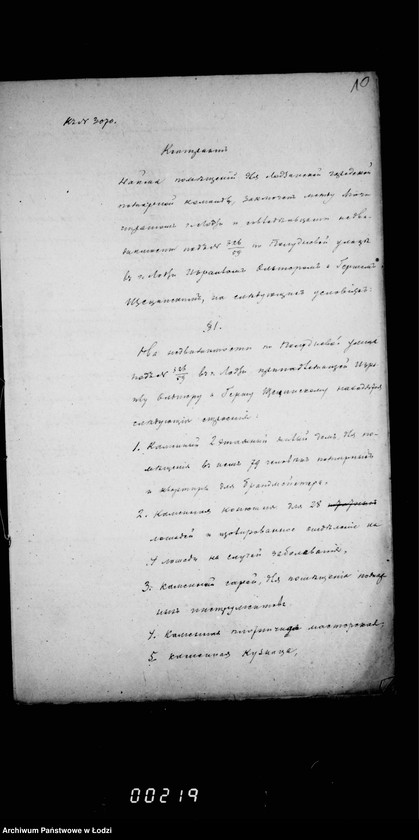 10
Къ № 3070.
Контрактъ
Найма помѣщеній для Лодзинской городской
пожарной команды, заключенъ между Маги-
стратомъ г. Лодзи и совладѣльцами недви-
жимости подъ № 726/59 по Полудневой улицѣ
въ г. Лодзи Израилемъ и Гершемъ
на слѣдующихъ условіяхъ:
§1.
На недвижимости по Полудневой улицѣ
подъ № 59 въ г. Лодзи принадлежащей Изра-
илю и Гершу находятся
слѣдующія строенія:
1. Каменный 2 этажный жилой домъ для по-
мѣщенія въ немъ 79 человѣкъ пожарныхъ
и квартира для Брандмейстера.
2. Каменная конюшня для 28
лошадей и изолированное отдѣленіе на
4 лошади на случай заболѣванія.
3. Каменный сарай, для помѣщенія пожар-
ныхъ инструментовъ.
4. Каменная мастерская,
5. Каменная Кузница,
00219
Archiwum Państwowe w Łodzi